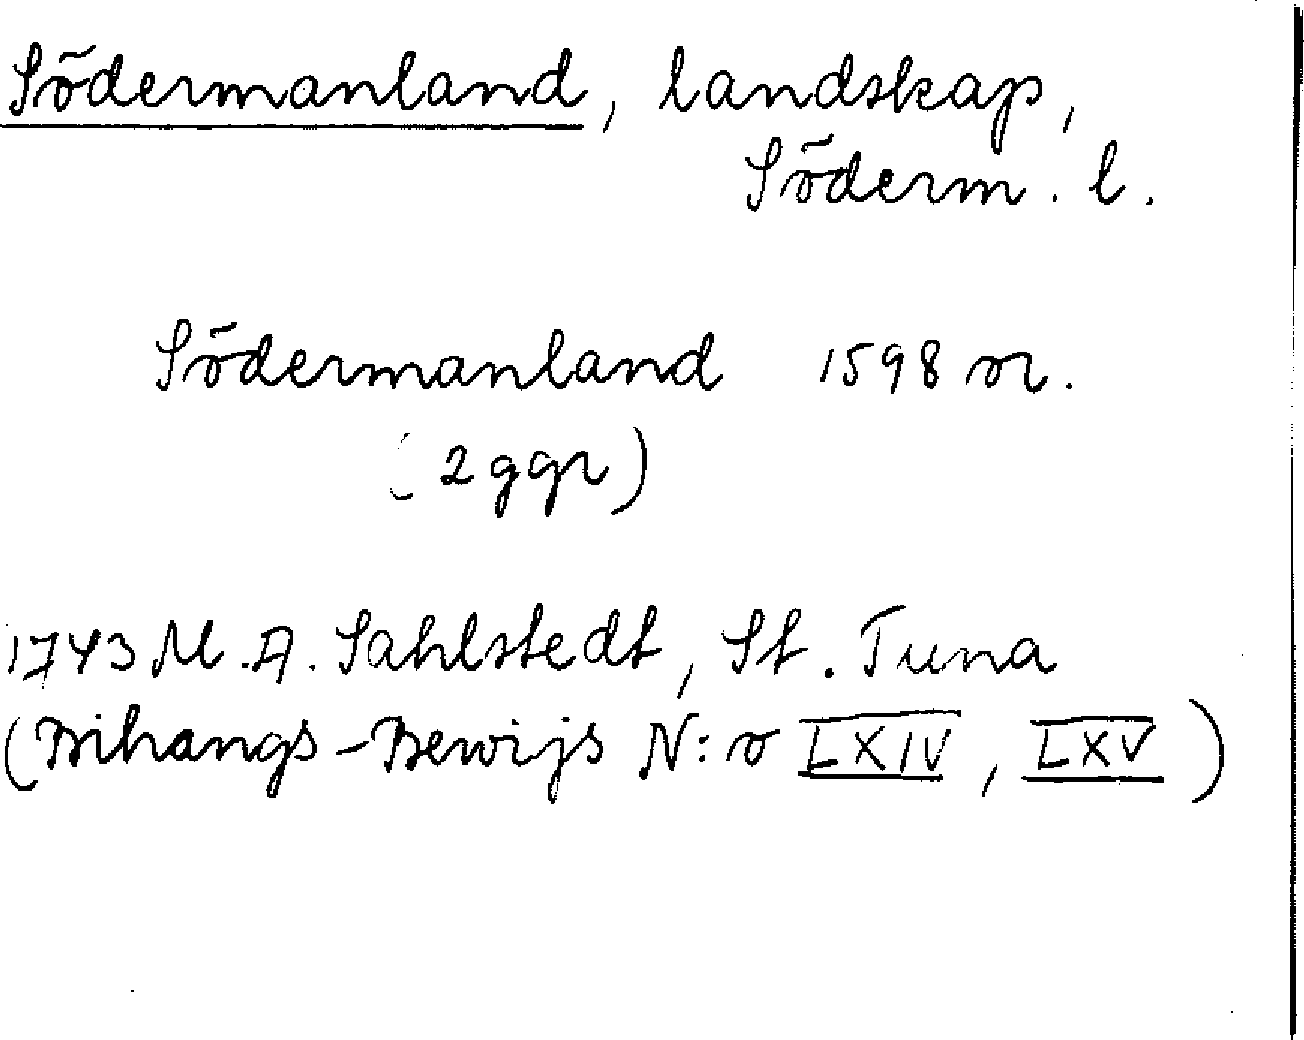 Södermanland, landskap,
Söderm. l.
Södermanland 1598 or.
(2 ggr)
1743 M. A. Sahlstedt, St. Tuna
(Bihangs-Bewijs N:o LXIV, LXV)